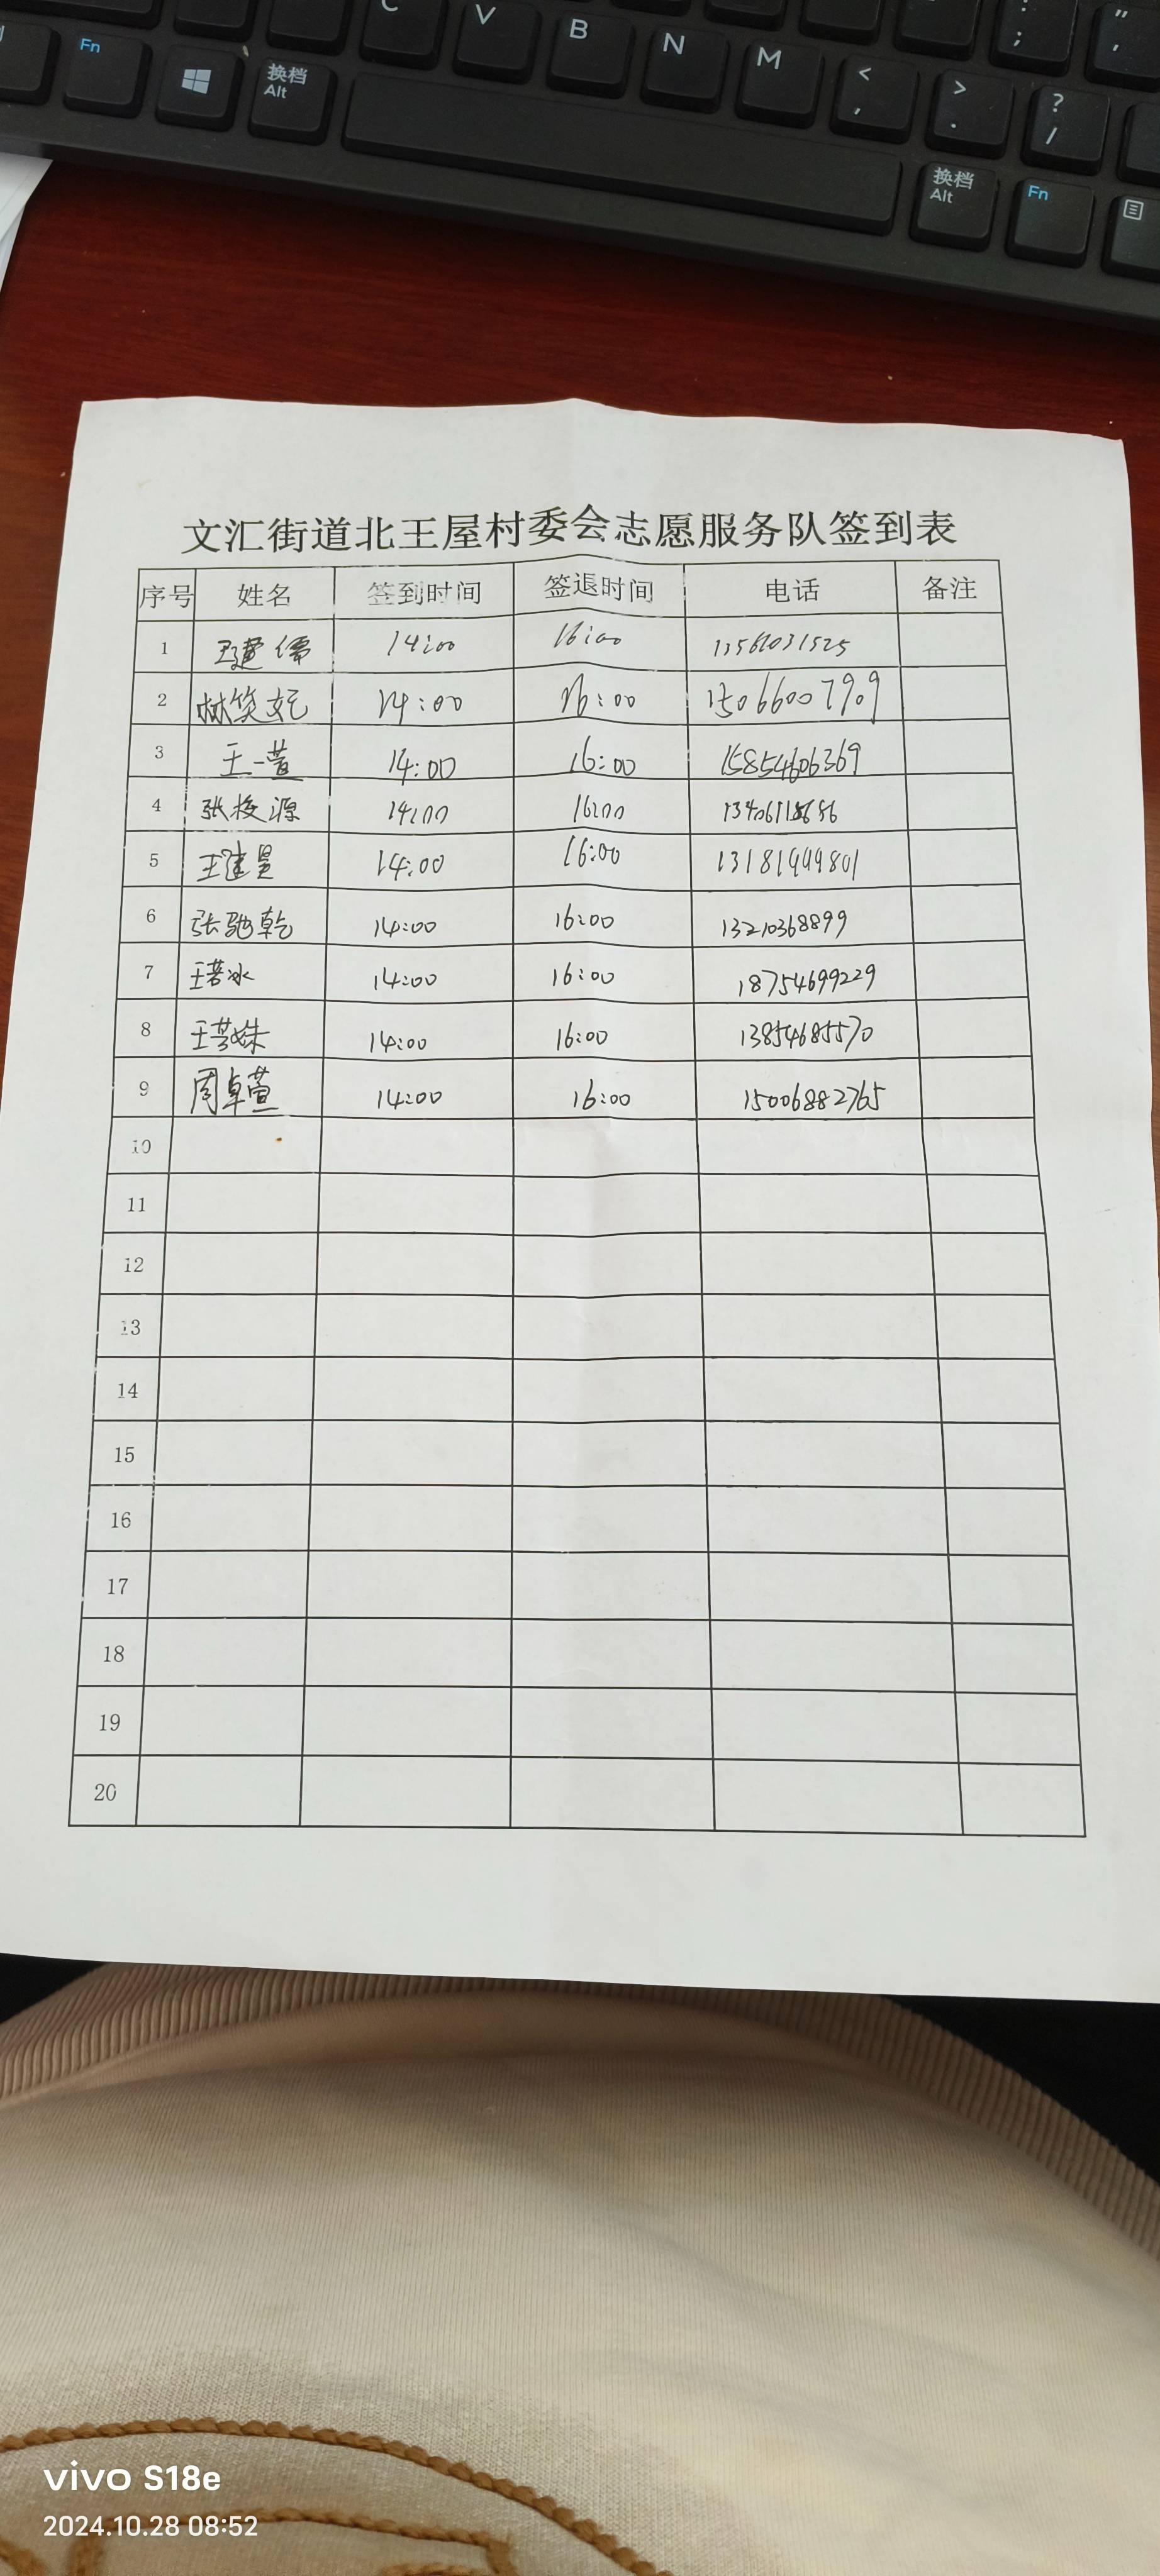 C V B N M : ; " ,
Fn 换档 Alt < , > . ? /
换档 Alt Fn
文汇街道北王屋村委会志愿服务队签到表
序号 姓名 签到时间 签退时间 电话 备注
1 王建儒 14:00 16:00 13561031525
2 林笑妃 14:00 16:00 15066007909
3 王一萱 14:00 16:00 15854606369
4 张 源 14:00 16:00
5 王建昊 14:00 16:00 13181999801
6 张驰乾 14:00 16:00 13210368899
7 王若冰 14:00 16:00 18754699229
8 王若姝 14:00 16:00 13854685570
9 周卓萱 14:00 16:00 15006882765
10
11
12
13
14
15
16
17
18
19
20
vivo S18e
2024.10.28 08:52